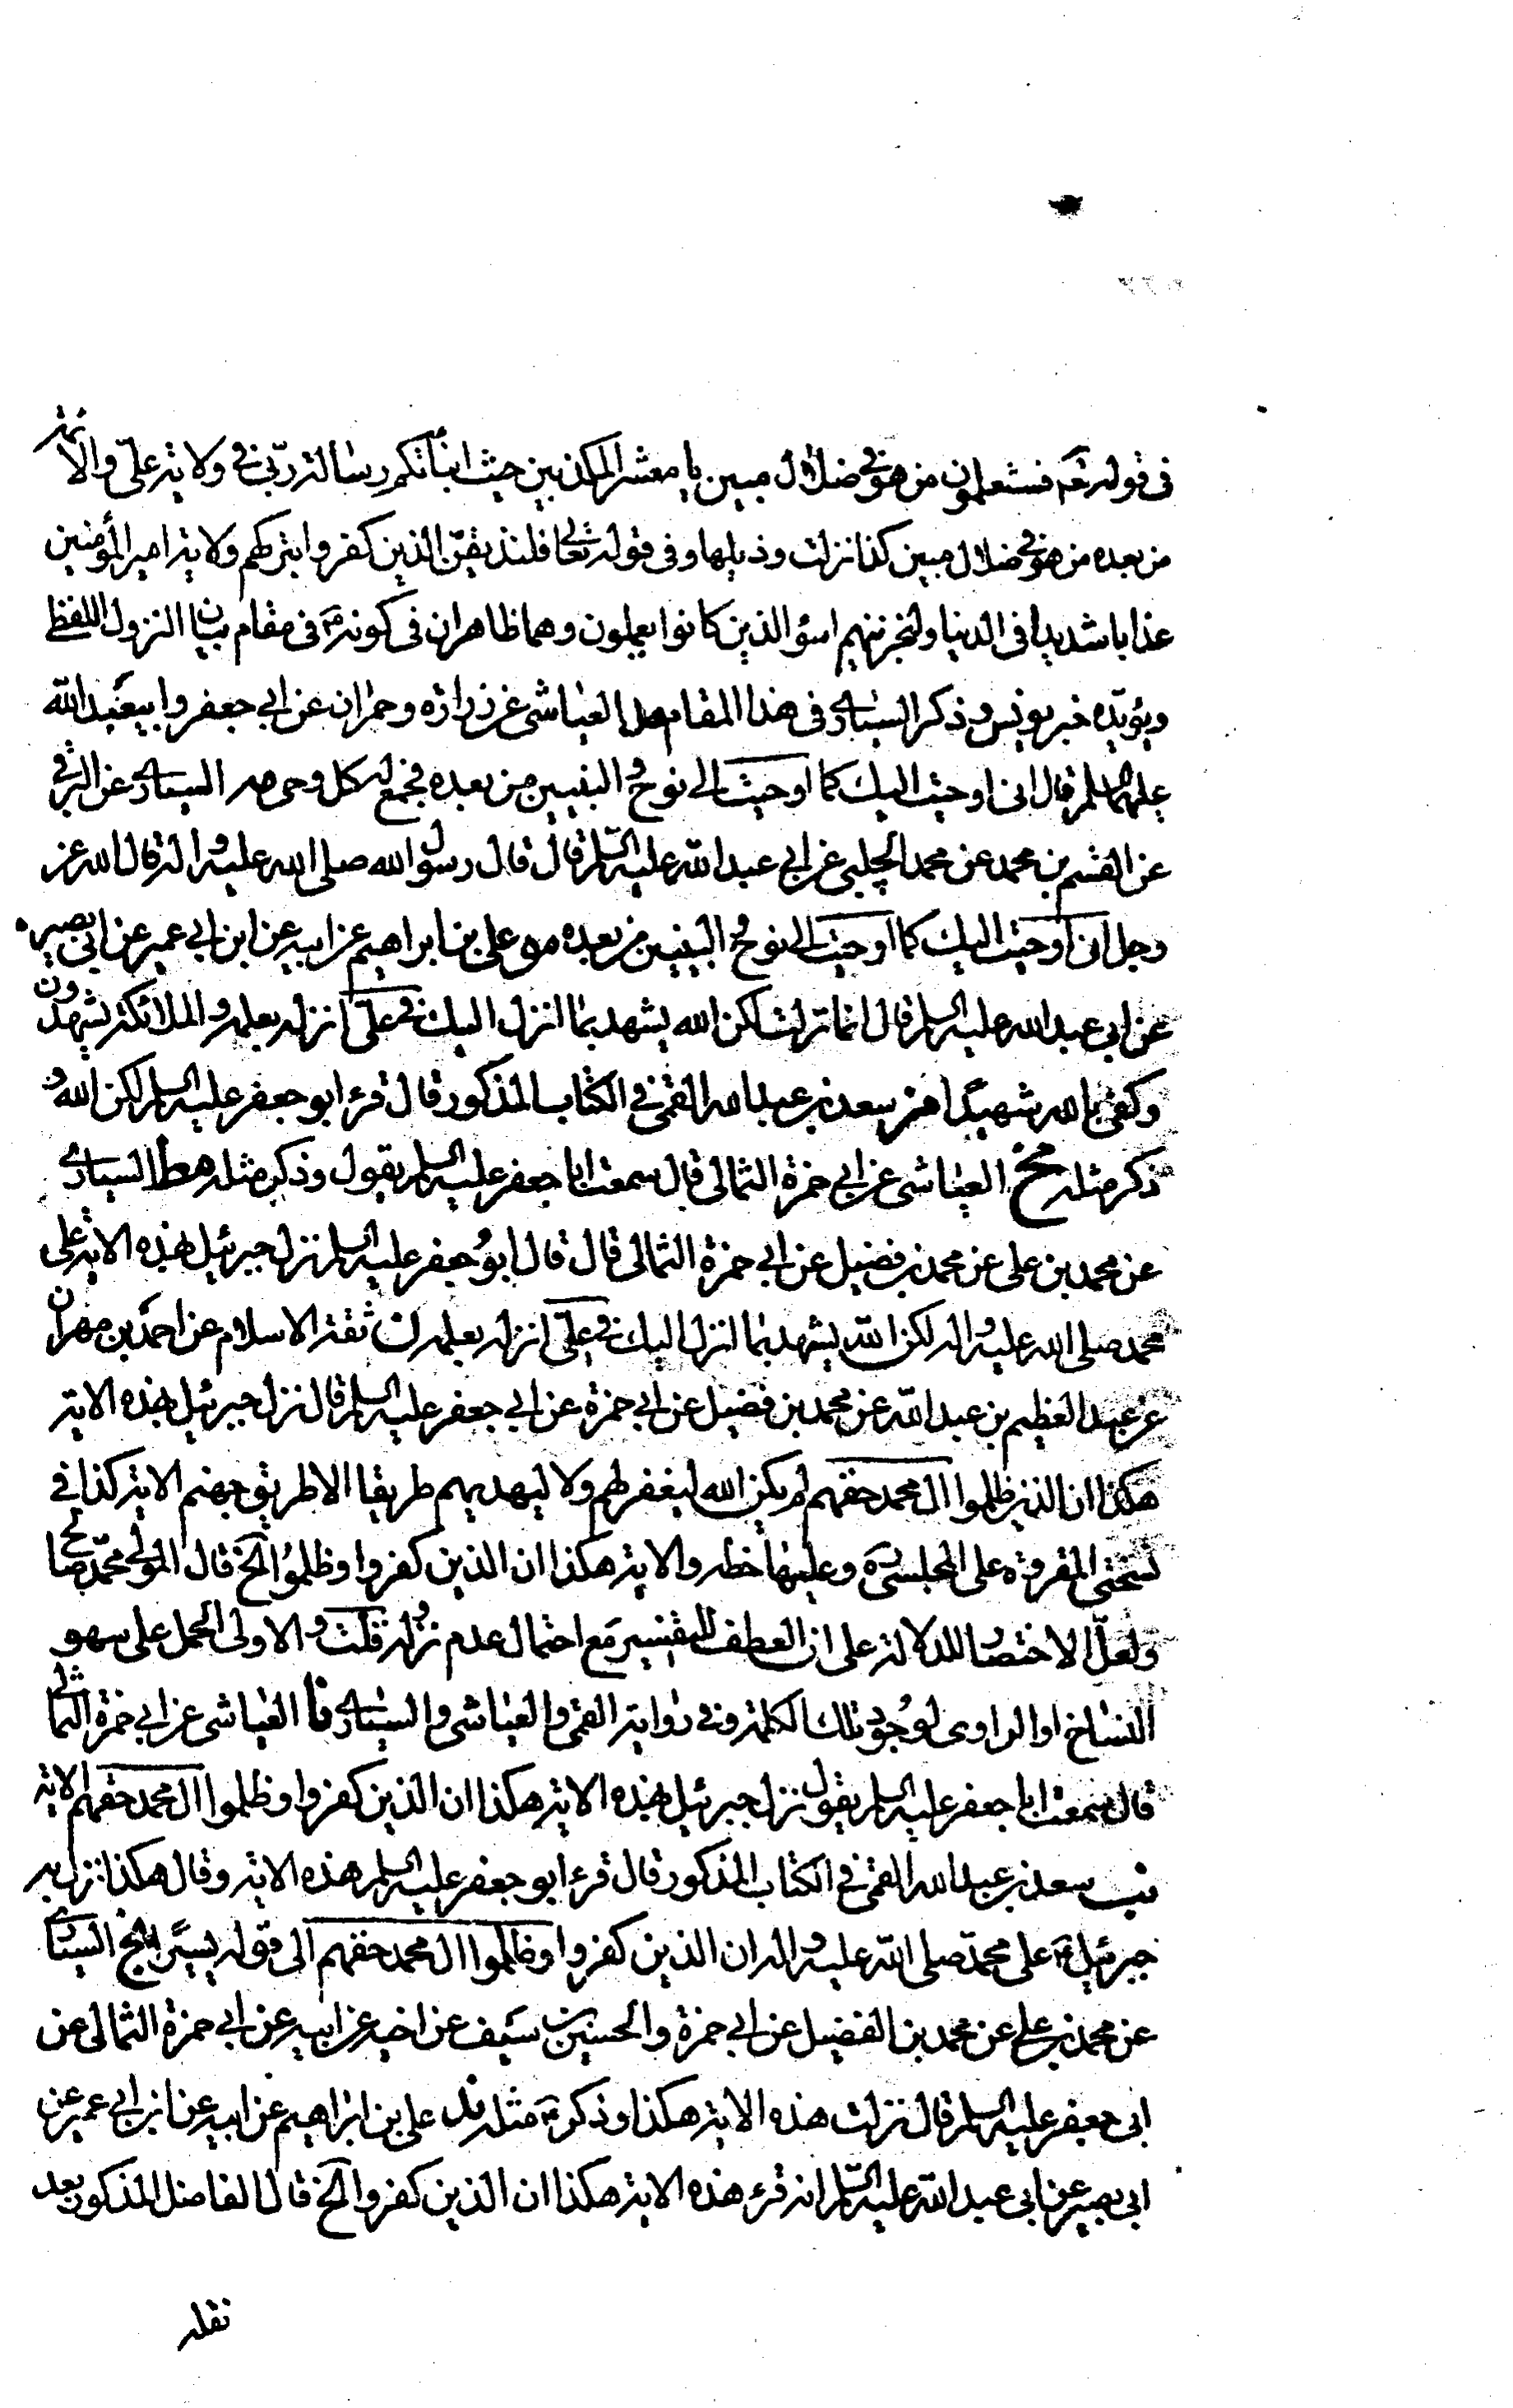 فى قوله تعم فستعلمون من هو فى ضلال مبين يا معشر المكذبين حيث انبأتكم رسالة ربى فى ولاية على والائمة
من بعده من هو فى ضلال مبين كذا نزلت وذيلها وفى قوله تعالى فلنذيقن الذين كفروا بتركهم ولاية امير المؤمنين
عذابا شديدا فى الدنيا ولنجزينهم اسؤ الذين كانوا يعملون وهما ظاهران فى كونه فى مقام بيان النزول اللفظى
ويؤيده خبر يونس وذكر السيارى فى هذا المقام العياشى عن زرارة وحمران عن ابى جعفر وابيعبد الله
عليهما السلم قال انى اوحيت اليك كما اوحيت الى نوح والنبيين من بعده فجمع له كل وحى السيارى عن البرقى
عن القسم بن محمد عن محمد الحلبى عن ابى عبد الله عليه السلم قال قال رسول الله صلى الله عليه واله قال الله عز
وجل انى اوحيت اليك كما اوحيت الى نوح والنبيين من بعده على بن ابراهيم عن ابيه عن ابن ابى عمير عن ابى بصير
عن ابى عبد الله عليه السلم قال انما نزلت لكن الله يشهد بما انزل اليك فى على انزله بعلمه والملائكة يشهدون
وكفى بالله شهيدا سعد بن عبد الله القمى فى الكتاب المذكور قال قرء ابو جعفر عليه السلم لكن الله و
ذكر مثله العياشى عن ابى حمزة الثمالى قال سمعت ابا جعفر عليه السلم يقول وذكر مثله السيارى
عن محمد بن على عن محمد بن فضيل عن ابى حمزة الثمالى قال قال ابو جعفر عليه السلم نزل جبرئيل بهذه الاية على
محمد صلى الله عليه واله لكن الله يشهد بما انزل اليك فى على انزله بعلمه ثقة الاسلام عن احمد بن مهران
عن عبد العظيم بن عبد الله عن محمد بن فضيل عن ابى حمزة عن ابى جعفر عليه السلم قال نزل جبرئيل بهذه الاية
هكذا ان الذين ظلموا ال محمد حقهم لم يكن الله ليغفر لهم ولا ليهديهم طريقا الا طريق جهنم الاية كذا فى
نسختى المقروة على المجلسى ره وعليها خطه والاية هكذا ان الذين كفروا وظلموا الخ قال المولى محمد صالح
ولعل الاختصار للدلالة على ان العطف للتفسير مع احتمال عدم نزوله قلت والاولى الحمل على سهو
النساخ او الراوى لوجود تلك الكلمة فى رواية القمى والعياشى والسيارى العياشى عن ابى حمزة الثمالى
قال سمعت ابا جعفر عليه السلم يقول نزل جبرئيل بهذه الاية هكذا ان الذين كفروا وظلموا ال محمد حقهم الاية
سعد بن عبد الله القمى فى الكتاب المذكور قال قرء ابو جعفر عليه السلم هذه الاية وقال هكذا نزل به
جبرئيل ع على محمد صلى الله عليه واله ان الذين كفروا وظلموا ال محمد حقهم الى قوله يسيرا السيارى
عن محمد بن على عن محمد بن الفضيل عن ابى حمزة والحسين بن سيف عن اخيه عن ابيه عن ابى حمزة الثمالى عن
ابى جعفر عليه السلم قال نزلت هذه الاية هكذا وذكر مثله على بن ابراهيم عن ابيه عن ابن ابى عمير عن
ابى بصير عن ابى عبد الله عليه السلم انه قرء هذه الاية هكذا ان الذين كفروا الخ قال الفاضل المذكور بعد
نقله